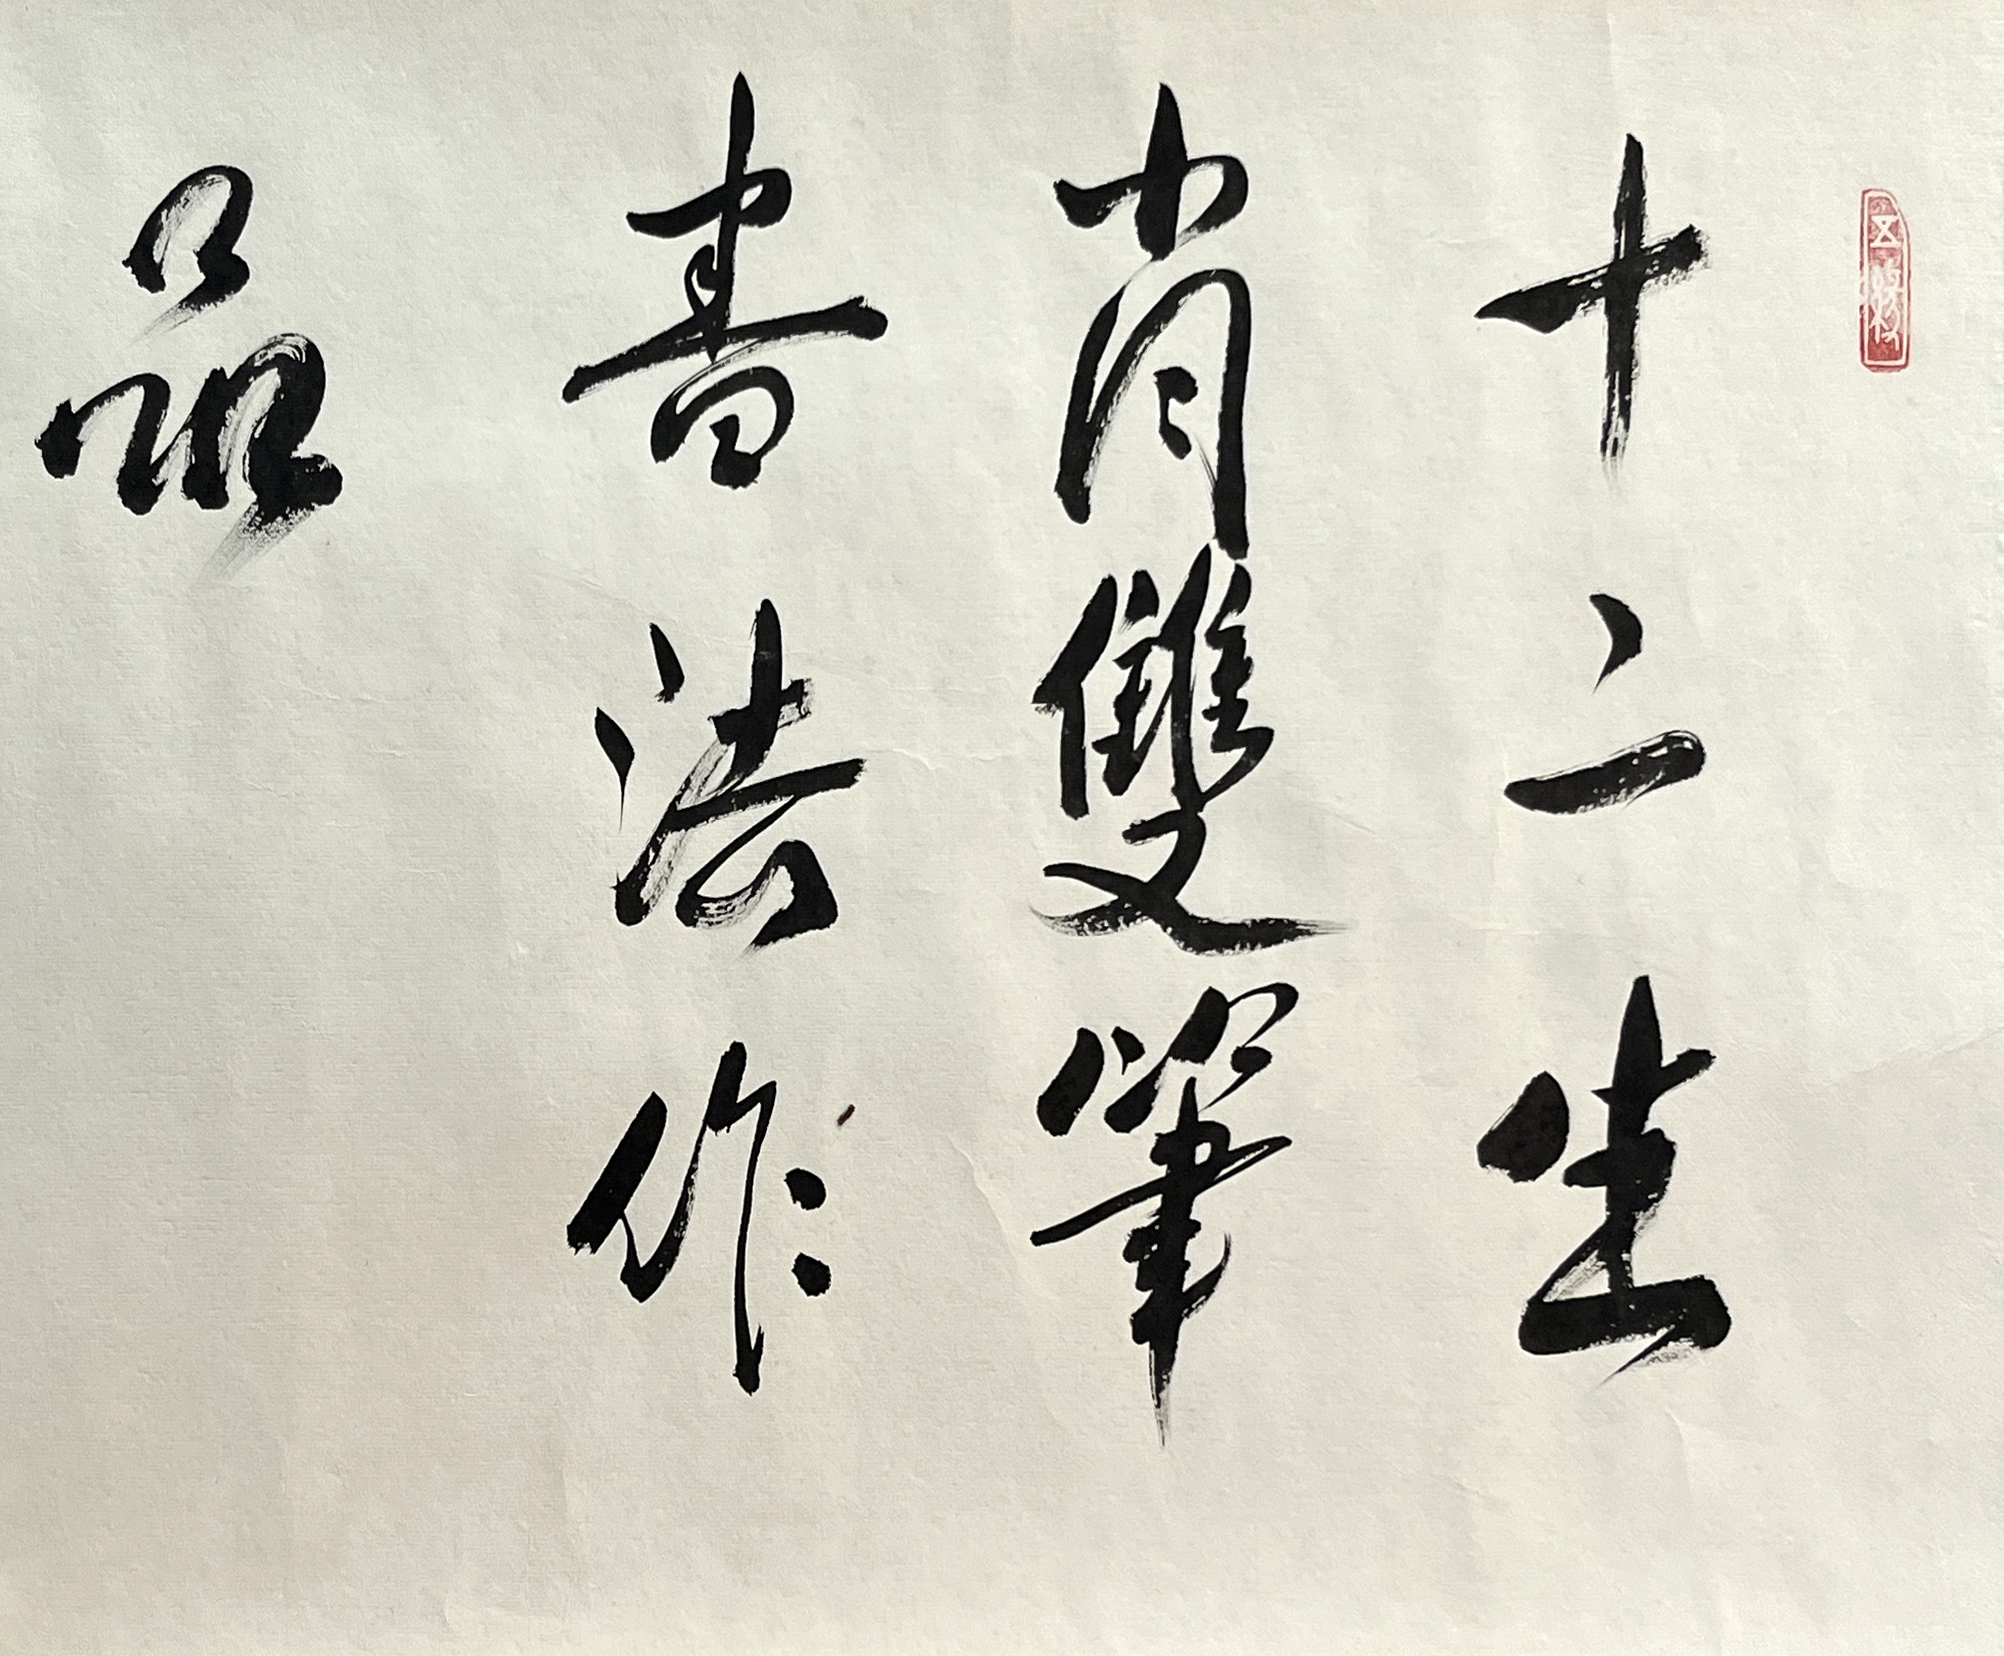 十二生
肖雙筆
書法作
品